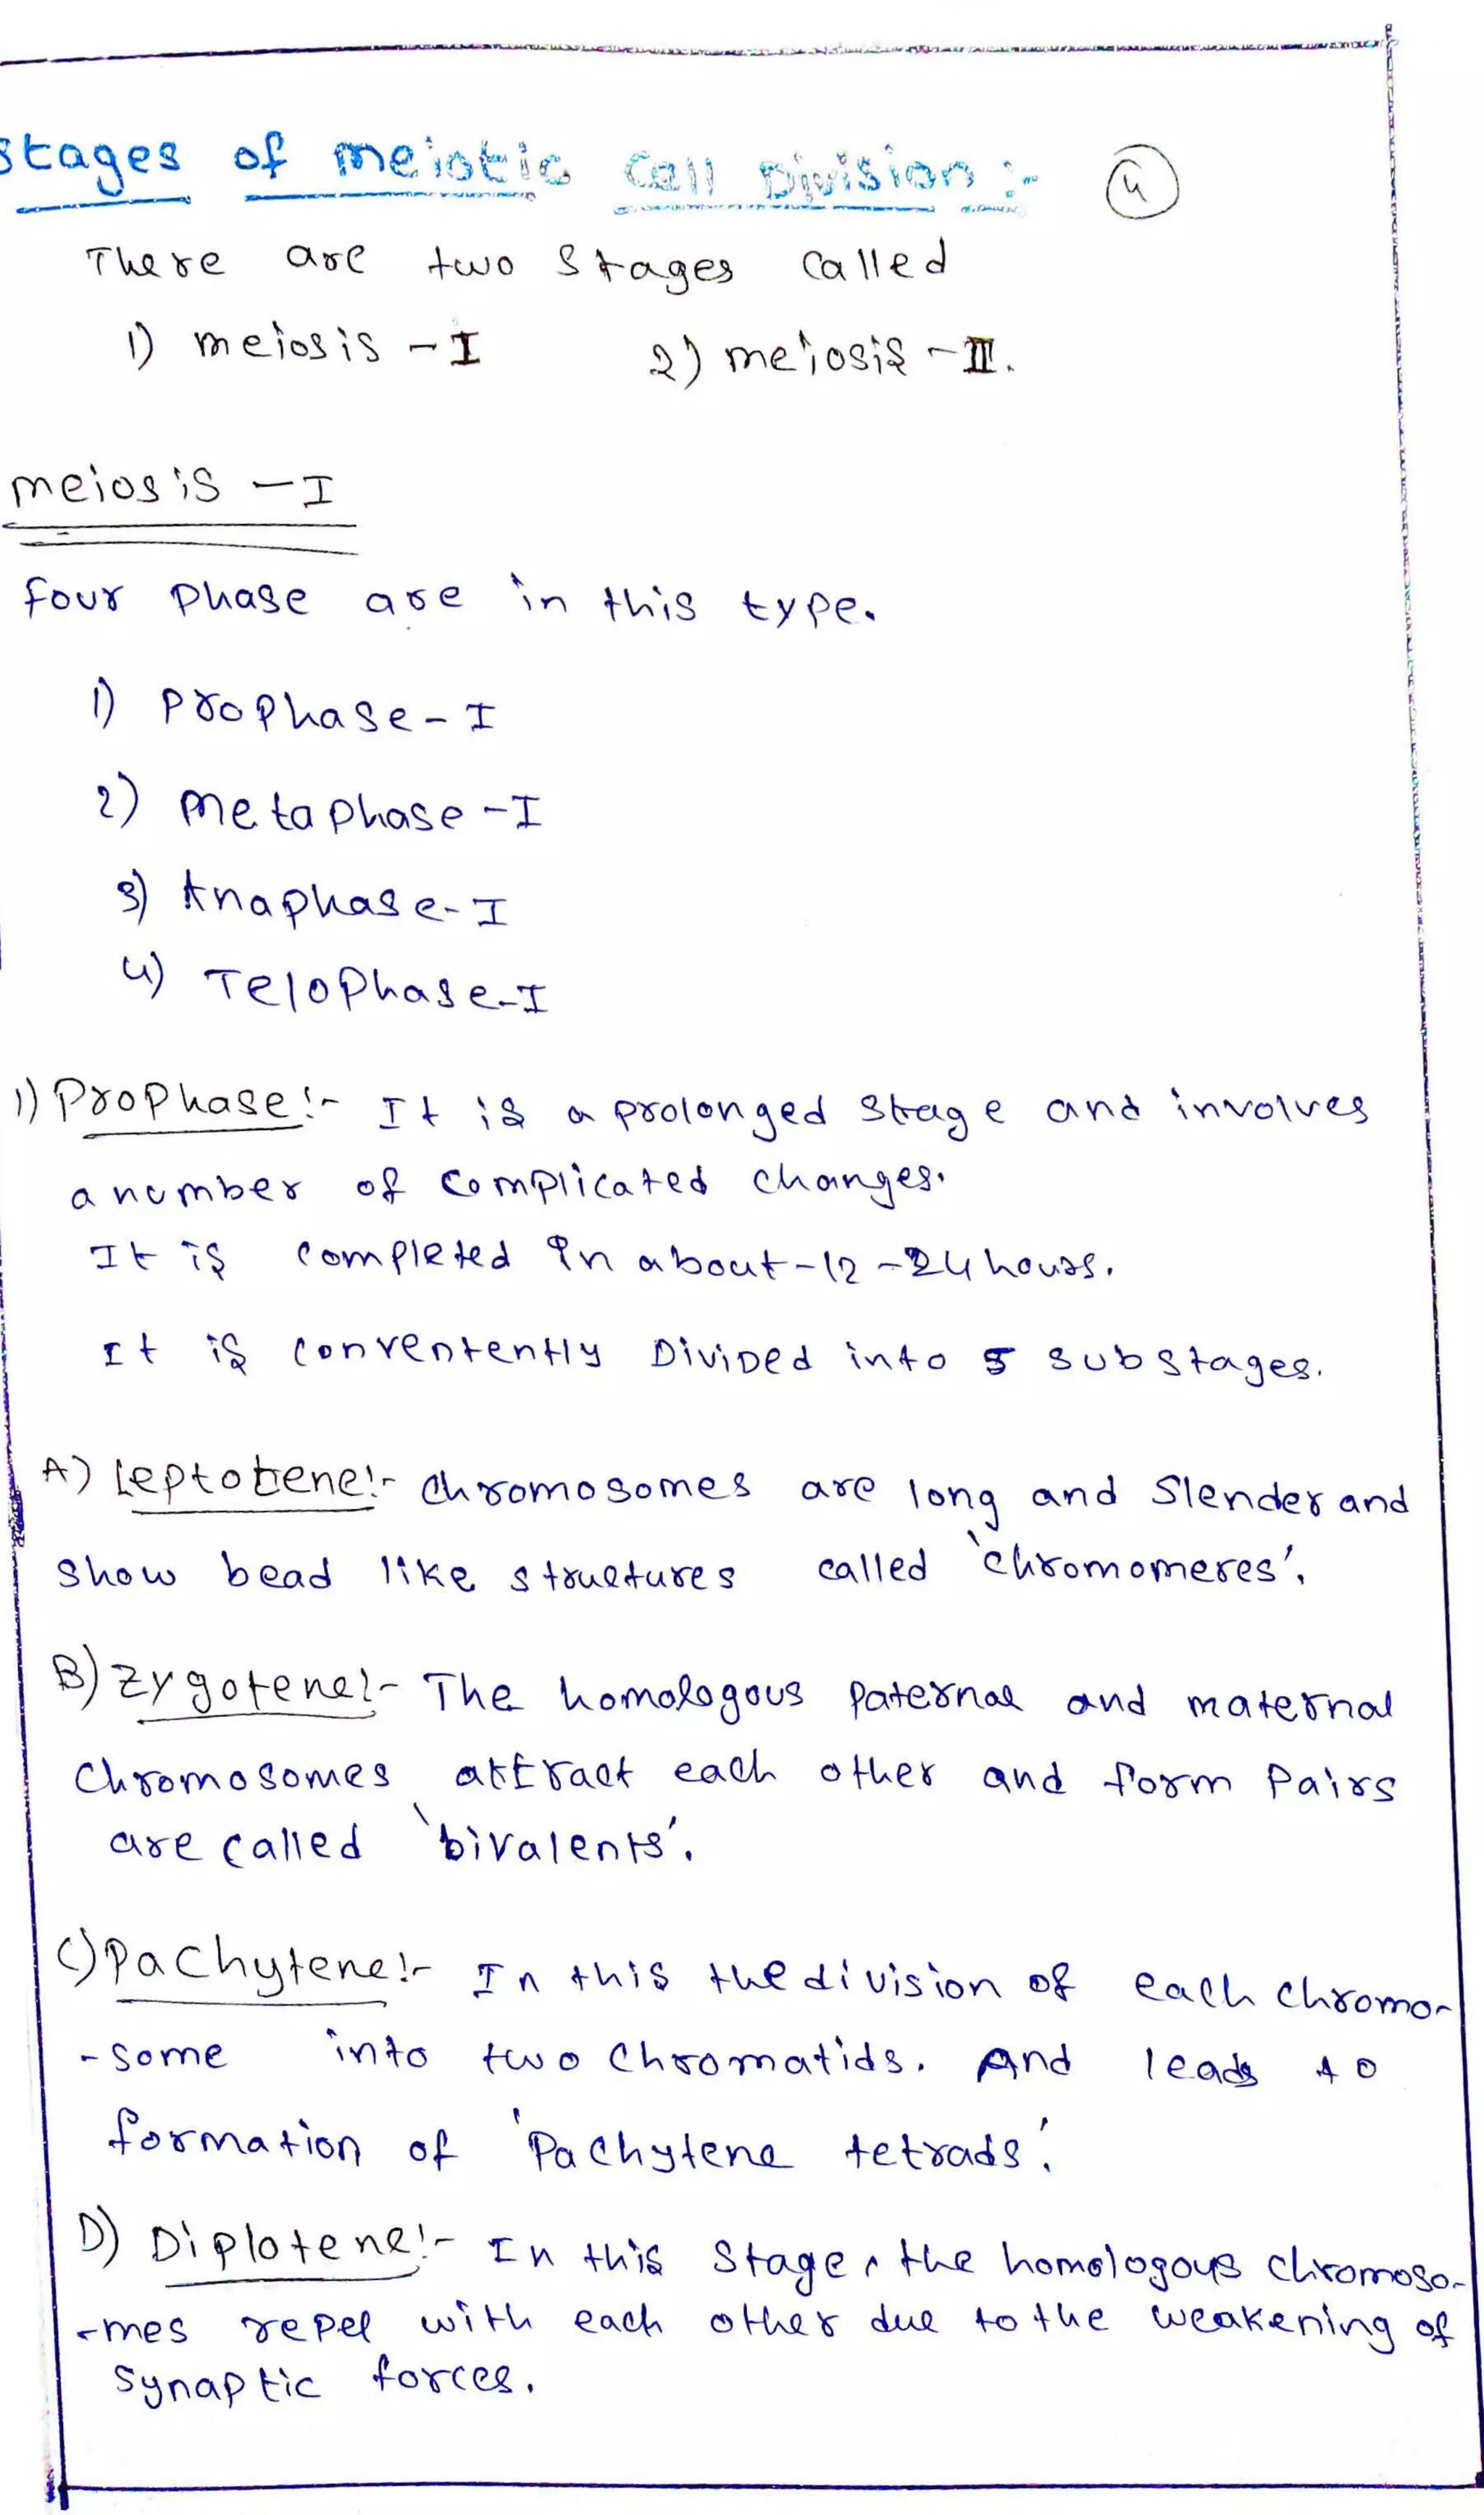 stages of meiotic Cell Division :-
4
There are two stages Called
1) meiosis - I 2) meiosis - II.
meiosis - I
four Phase are in this type.
1) Prophase - I
2) Metaphase - I
3) Anaphase - I
4) Telophase - I
1) Prophase:- It is a prolonged stage and involves
a number of complicated changes.
It is completed in about - 12 - 24 hours.
It is conventently Divided into 5 substages.
A) Leptotene:- Chromosomes are long and Slender and
Show bead like structures called 'Chromomeres'.
B) Zygotene:- The homologous Paternal and maternal
Chromosomes attract each other and form Pairs
are called 'bivalents'.
C) Pachytene:- In this the division of each chromo-
-some into two Chromatids. And leads to
formation of 'Pachytene tetrads'.
D) Diplotene:- In this Stage, the homologous Chromoso-
-mes repel with each other due to the weakening of
Synaptic forces.